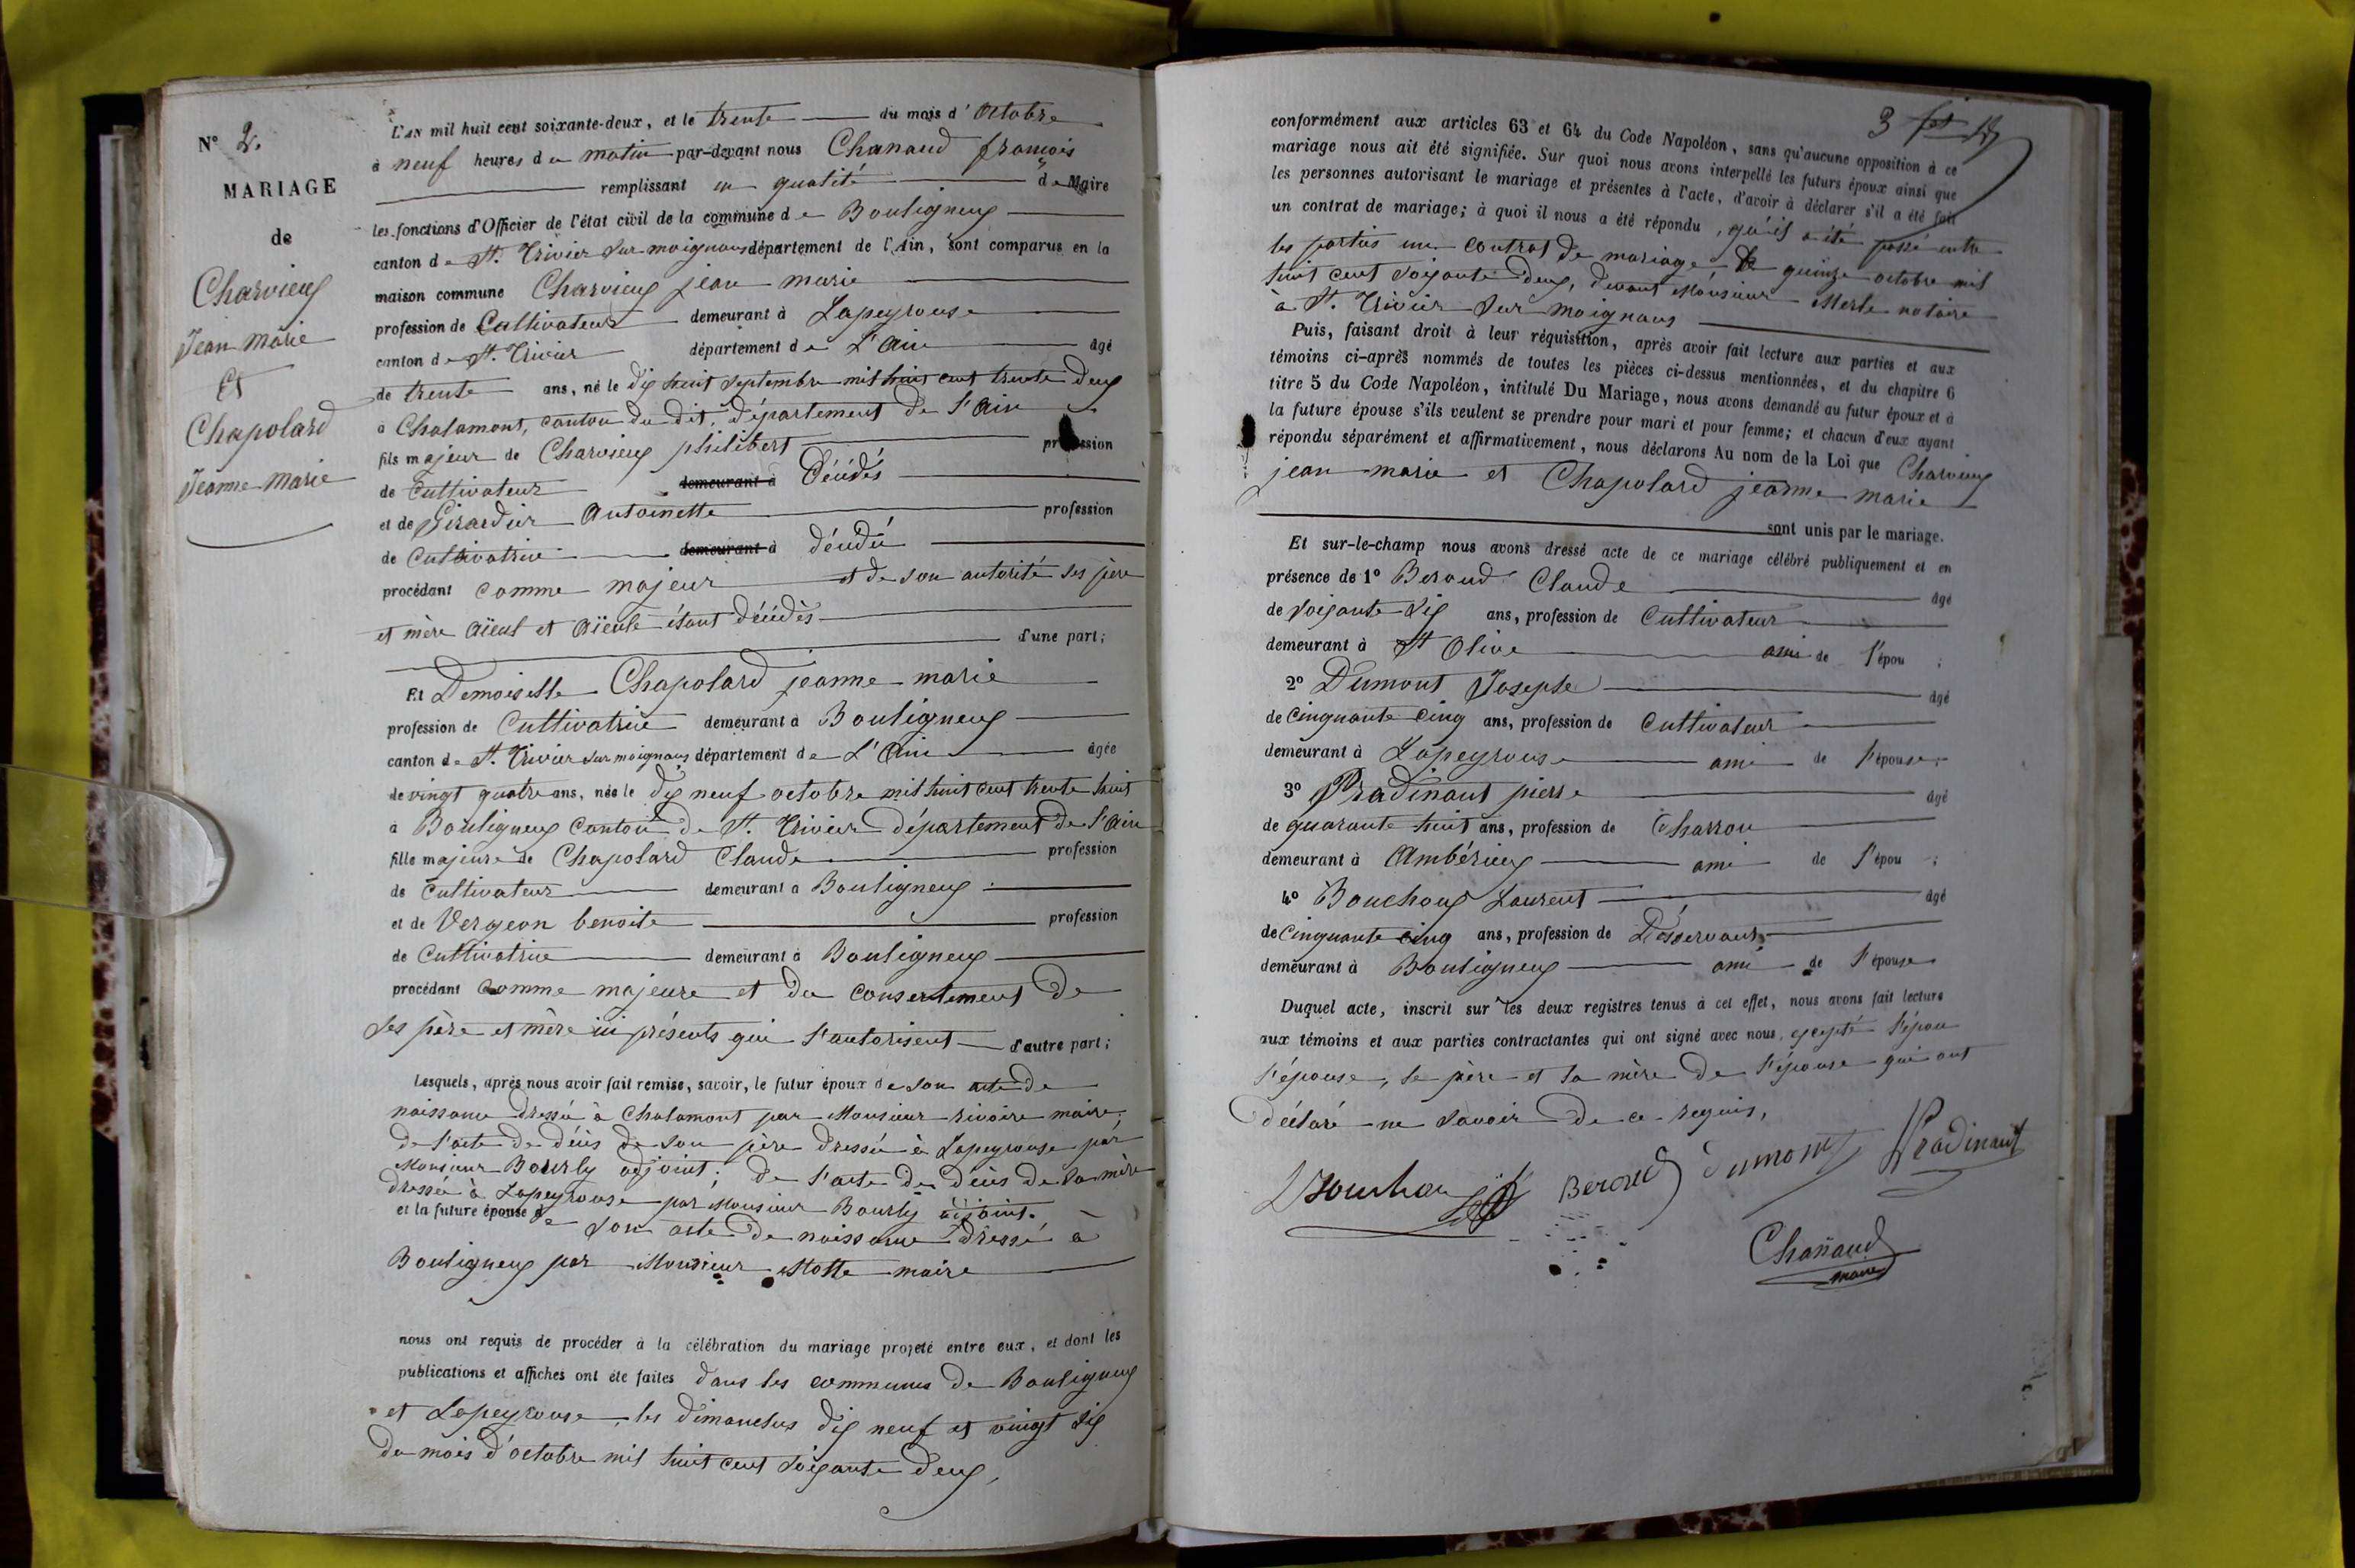 N° 2.
MARIAGE
de
Charvieux
Jean Marie
Et
Chapolard
Jeanne Marie
L'an mil huit cent soixante-deux, et le trente du mois d'Octobre
à neuf heures du matin par-devant nous Chanaud françois
remplissant en qualité de Maire
les fonctions d'Officier de l'état civil de la commune de Bouligneux
canton de St. Trivier sur moignans département de l'Ain, sont comparus en la
maison commune Charvieux jean marie
profession de Cultivateur demeurant à Lapeyrouse
canton de St. Trivier département de L'Ain âgé
de trente ans, né le dix huit septembre mil huit cent trente deux
à Chalamont, canton du dit, département de l'Ain
fils majeur de Charvieux philibert profession
de Cultivateur demeurant à Décédés
et de Girardier Antoinette profession
de Cultivatrice demeurant à décédée
procédant comme majeur et de son autorité ses père
et mère aïeul et aïeule étant décédés
d'une part;
Et Demoiselle Chapolard jeanne marie
profession de Cultivatrice demeurant à Bouligneux
canton de St. Trivier sur moignans département de L'Ain âgée
de vingt quatre ans, née le dix neuf octobre mil huit cent trente huit
à Bouligneux Canton de St. Trivier département de l'Ain
fille majeure de Chapolard Claude profession
de Cultivateur demeurant à Bouligneux
et de Vergeon benoite profession
de Cultivatrice demeurant à Bouligneux
procédant comme majeure et du consentement de
ses père et mère ici présents qui l'autorisent d'autre part;
Lesquels, après nous avoir fait remise, savoir, le futur époux de son acte de
naissance dressé à Chalamont par Monsieur rivoire maire;
de l'acte de décès de son père dressé à Lapeyrouse par
Monsieur Bourly adjoint; de l'acte de décès de sa mère
dressé à Lapeyrouse par Monsieur Bourly adjoint.
et la future épouse de son acte de naissance dressé à
Bouligneux par Monsieur Motte maire
nous ont requis de procéder à la célébration du mariage projeté entre eux, et dont les
publications et affiches ont été faites dans les communes de Bouligneux
et Lapeyrouse, les dimanches dix neuf et vingt six
du mois d'octobre mil huit cent soixante deux,
3
conformément aux articles 63 et 64 du Code Napoléon, sans qu'aucune opposition à ce
mariage nous ait été signifiée. Sur quoi nous avons interpellé les futurs époux ainsi que
les personnes autorisant le mariage et présentes à l'acte, d'avoir à déclarer s'il a été fait
un contrat de mariage; à quoi il nous a été répondu, qu'il a été passé entre
les parties un contrat de mariage, le quinze octobre mil
huit cent soixante deux, devant Monsieur Merle notaire
à St. Trivier sur moignans
Puis, faisant droit à leur réquisition, après avoir fait lecture aux parties et aux
témoins ci-après nommés de toutes les pièces ci-dessus mentionnées, et du chapitre 6
titre 5 du Code Napoléon, intitulé Du Mariage, nous avons demandé au futur époux et à
la future épouse s'ils veulent se prendre pour mari et pour femme; et chacun d'eux ayant
répondu séparément et affirmativement, nous déclarons Au nom de la Loi que Charvieux
jean marie et Chapolard jeanne marie
sont unis par le mariage.
Et sur-le-champ nous avons dressé acte de ce mariage célébré publiquement et en
présence de 1° Beroud Claude âgé
de soixante dix ans, profession de Cultivateur
demeurant à St Olive ami de l'épou ;
2° Dumont Joseph âgé
de Cinquante cinq ans, profession de Cultivateur
demeurant à Lapeyrouse ami de l'épouse;
3° Pradinaut pierre âgé
de quarante huit ans, profession de Charron
demeurant à Ambérieux ami de l'épou ;
4° Bouchoux Laurent âgé
de Cinquante cinq ans, profession de Desservant
demeurant à Bouligneux ami de l'épouse
Duquel acte, inscrit sur les deux registres tenus à cet effet, nous avons fait lecture
aux témoins et aux parties contractantes qui ont signé avec nous, excepté l'épou
l'épouse, le père et la mère de l'épouse qui ont
déclaré ne savoir de ce requis,
Beroud Dumont Pradinaut
Chanaud
maire